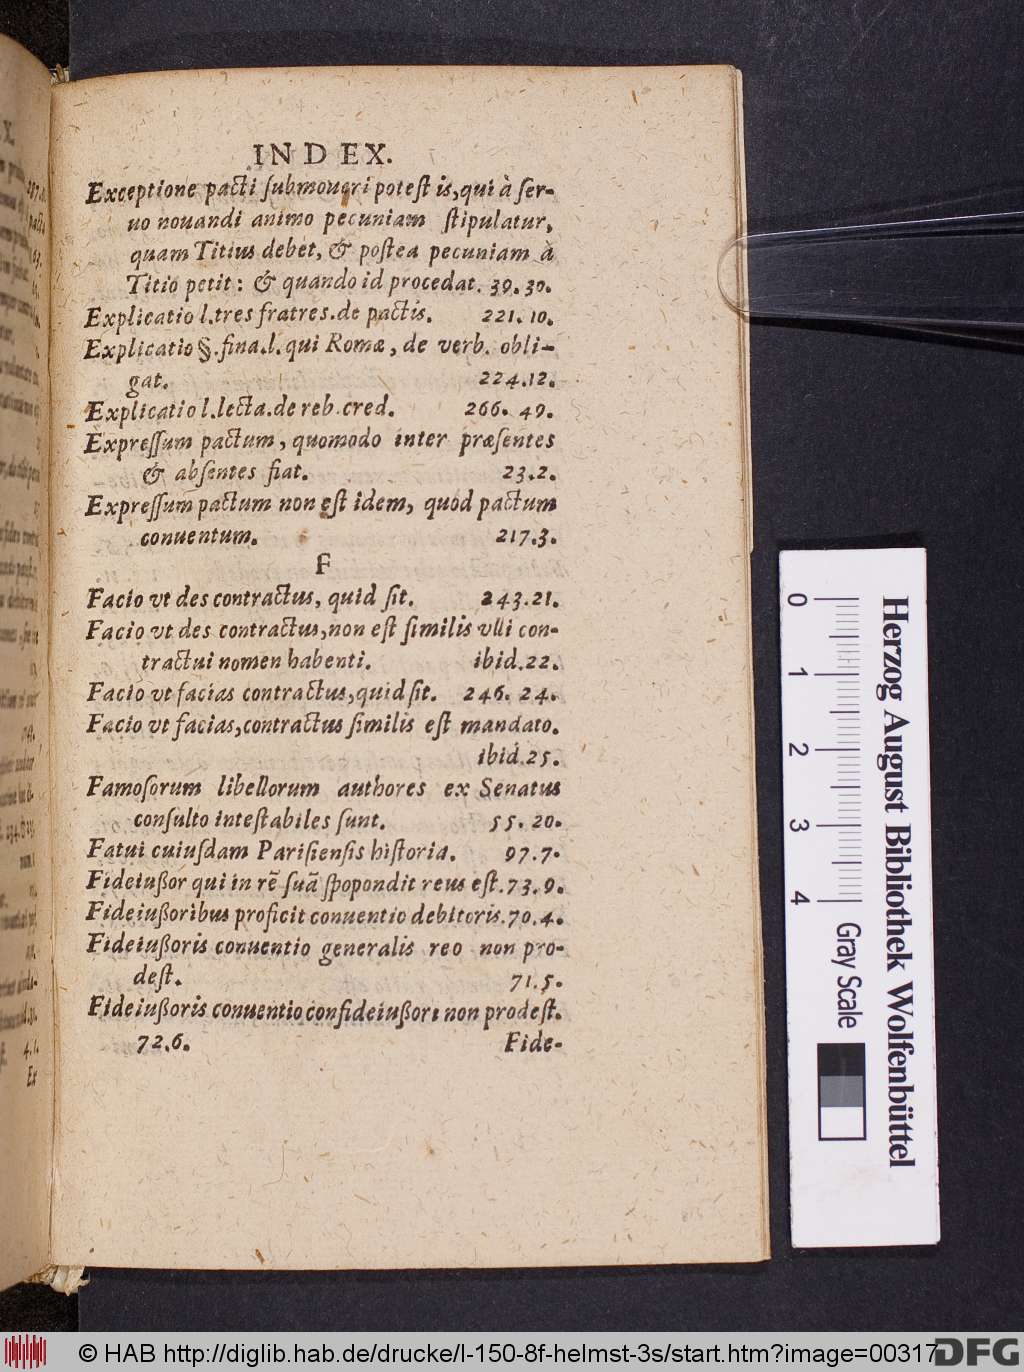 INDEX.
Exceptione pacti ſubmoueri poteſt is, qui à ſer-
uo nouandi animo pecuniam ſtipulatur,
quam Titius debet, & poſtea pecuniam à
Titio petit: & quando id procedat. 39.30.
Explicatio l. tres fratres. de pactis. 221.10.
Explicatio §. fina. l. qui Romæ, de verb. obli-
gat. 224.12.
Explicatio l. lecta. de reb. cred. 266. 49.
Expreſſum pactum, quomodo inter præſentes
& abſentes fiat. 23.2.
Expreſſum pactum non eſt idem, quod pactum
conuentum. 217.3.
F
Facio vt des contractus, quid ſit. 243.21.
Facio vt des contractus, non eſt ſimilis vlli con-
tractui nomen habenti. ibid.22.
Facio vt facias contractus, quid ſit. 246. 24.
Facio vt facias, contractus ſimilis eſt mandato.
ibid.25.
Famoſorum libellorum authores ex Senatus
conſulto inteſtabiles ſunt. 55.20.
Fatui cuiuſdam Pariſienſis hiſtoria. 97.7.
Fideiußor qui in rẽ ſuã ſpopondit reus eſt. 73.9.
Fideiußoribus proficit conuentio debitoris. 70.4.
Fideiußoris conuentio generalis reo non pro-
deſt. 71.5.
Fideiußoris conuentio confideiußori non prodeſt.
72.6. Fide-
Herzog August Bibliothek Wolfenbüttel
0 1 2 3 4 Gray Scale
© HAB http://diglib.hab.de/drucke/l-150-8f-helmst-3s/start.htm?image=00317
DFG